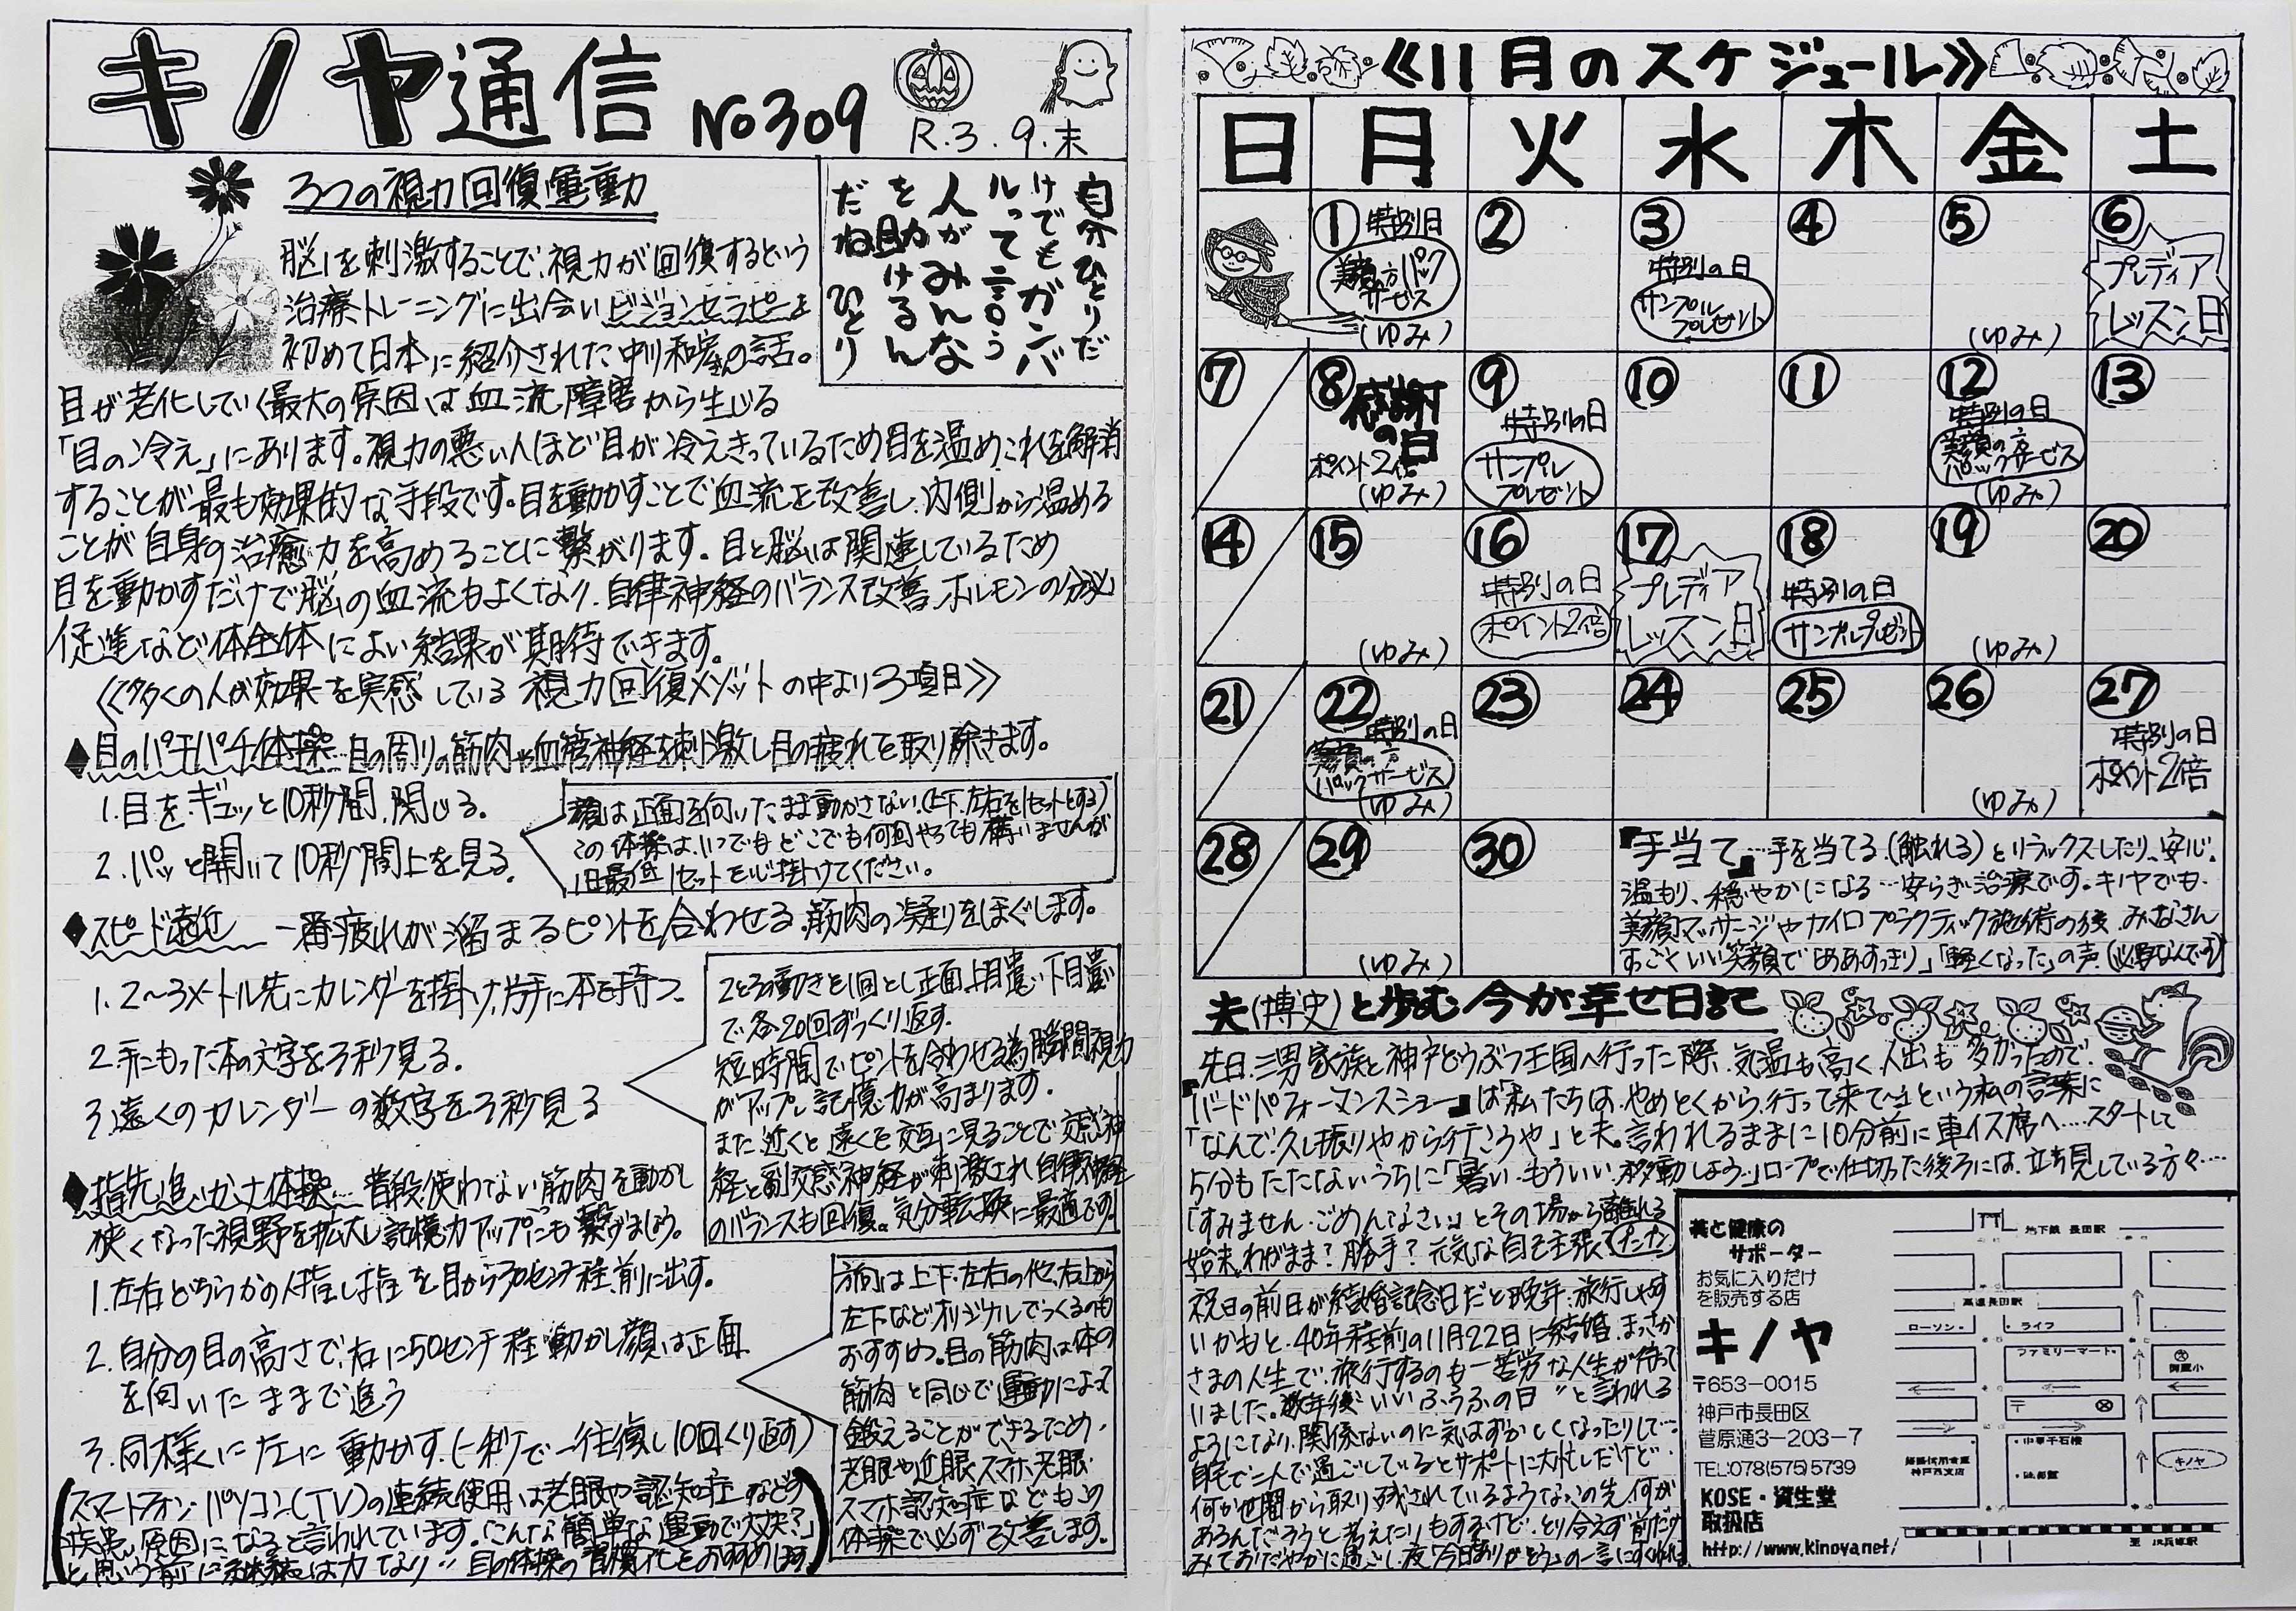 キノヤ通信 No309
R.3.9.末
3つの視力回復運動
自分ひとりだ
けでもガンバ
ルって言う
人がみんな
を助けるん
だね ひとり
脳を刺激することで、視力が回復するという
治療、トレーニングに出会いビジョンセラピーを
初めて日本に紹介された中川和宏さんの話。
目が老化していく最大の原因は血流障害から生じる
「目の冷え」にあります。視力の悪い人ほど目が冷えきっているため目を温めこれを解消
することが最も効果的な手段です。目を動かすことで血流を改善し、内側から温める
ことが自身の治癒力を高めることに繋がります。目と脳は関連しているため
目を動かすだけで脳の血流もよくなり、自律神経のバランス改善、ホルモンの分泌
促進など体全体によい結果が期待できます。
≪多くの人が効果を実感している視力回復メゾットの中より3項目≫
◆目のパチパチ体操…目の周りの筋肉や血管神経を刺激し目の疲れを取り除きます。
1.目をギュッと10秒間、閉じる。
2.パッと開いて10秒間上を見る。
顔は正面を向いたまま動かさない。(上下、左右を1セットとする)
この体操は、いつでもどこでも何回やっても構いませんが
1日最低1セットを心掛けてください。
◆スピード遠近 一番疲れが溜まるピントを合わせる筋肉の凝りをほぐします。
1.2~3メートル先にカレンダーを掛け、片手に本を持つ、
2.手にもった本の文字を3秒見る。
3.遠くのカレンダーの数字を3秒見る
2と3の動きを1回とし正面、上目遣い、下目遣い
で各20回ずつくり返す。
短時間でピントを合わせる為瞬間視力
がアップし記憶力が高まります。
また近くと遠くを交互に見ることで交感神
経と副交感神経が刺激され自律神経
のバランスも回復。気分転換に最適です!
◆指先追いかけ体操…普段使わない筋肉を動かし
狭くなった視野を拡大し記憶力アップにも繋げましょう。
1.左右どちらかの人指し指を目から30センチ程、前に出す。
2.自分の目の高さで、右に50センチ程動かし顔は正面
を向いたままで追う
3.同様に左に動かす。(一秒で一往復し10回くり返す)
方向は上下・左右の他、右上から
左下などオリジナルでつくるのも
おすすめ。目の筋肉は体の
筋肉と同じで運動によって
鍛えることができるため、
老眼や近眼、スマホ老眼・
スマホ認知症などもこの
体操で必ず改善します。
(スマートフォン・パソコン(TV)の連続使用は老眼や認知症などの
疾患の原因になると言われています。「こんな簡単な運動で大丈夫?」
と思う前に“継続は力なり”目の体操の習慣化をおすすめします)
≪11月のスケジュール≫
日 月 火 水 木 金 土
① 特別日 美顔の方パックサービス (ゆみ)
②
③ 特別の日 サンプルプレゼント
④
⑤ (ゆみ)
⑥ プレディアレッスン日
⑦
⑧ 感謝の日 ポイント2倍 (ゆみ)
⑨ 特別の日 サンプルプレゼント
⑩
⑪
⑫ 特別の日 美顔の方パックサービス (ゆみ)
⑬
⑭
⑮ (ゆみ)
⑯ 特別の日 ポイント2倍
⑰ プレディアレッスン日
⑱ 特別の日 サンプルプレゼント
⑲ (ゆみ)
⑳
㉑
㉒ 特別の日 美顔の方パックサービス (ゆみ)
㉓
㉔
㉕
㉖ (ゆみ)
㉗ 特別の日 ポイント2倍
㉘
㉙ (ゆみ)
㉚
『手当て』…手を当てる(触れる)とリラックスしたり、安心、
温もり、穏やかになる…安らぎ治療です。キノヤでも
美顔マッサージやカイロプラクティック施術の後、みなさん
すごくいい笑顔で「ああすっきり」「軽くなった」の声
夫(博史)と歩む今が幸せ日記
先日、三男家族と神戸どうぶつ王国へ行った際、気温も高く、人出も多かったので、
『バードパフォーマンスショー』は「私たちは、やめとくから、行って来て~」という私の言葉に
「なんで、久し振りやから行こうや」と夫。言われるままに10分前に車イス席へ…スタートして
5分もたたないうちに「暑い、もういい、移動しよう」ロープで仕切った後ろには、立ち見している方々…
「すみません、ごめんなさい」とその場から離れる
始末。わがまま?勝手?元気な自己主張で
祝日の前日が結婚記念日だと晩年、旅行しやす
いかもと、40年程前の11月22日に結婚。まっさか
さまの人生で、旅行するのも一苦労な人生が待って
いました。数年後“いいふうふの日”と言われる
ようになり、関係ないのに気はずかしくなったりして…
自宅で二人で過ごしているとサポートに大忙しだけど、
何か世間から取り残されているような、この先、何が
あるんだろうと考えたりもするけど、とり合えず前だけ
みておだやかに過ごし、夜「今日ありがとう」の一言にすくわれる
美と健康の
サポーター
お気に入りだけ
を販売する店
キノヤ
〒653-0015
神戸市長田区
菅原通3-203-7
TEL:078(575)5739
KOSE・資生堂
取扱店
http://www.kinoya.net/
地下鉄 長田駅
高速長田駅
ローソン
ライフ
ファミリーマート
〒
キノヤ
至 JR兵庫駅